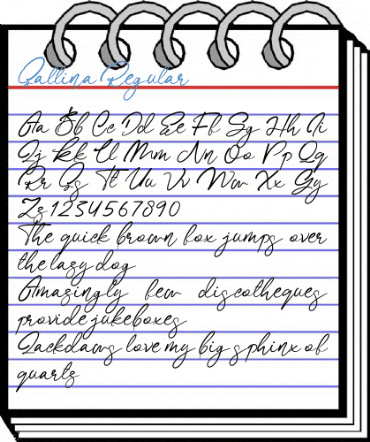 Qallina Regular
Aa Bb Cc Dd Ee Ff Gg Hh Ii
Jj Kk Ll Mm Nn Oo Pp Qq
Rr Ss Tt Uu Vv Ww Xx Yy
Zz 1234567890
The quick brown fox jumps over
the lazy dog
Amazingly few discotheques
provide jukeboxes
Jackdaws love my big sphinx of
quartz